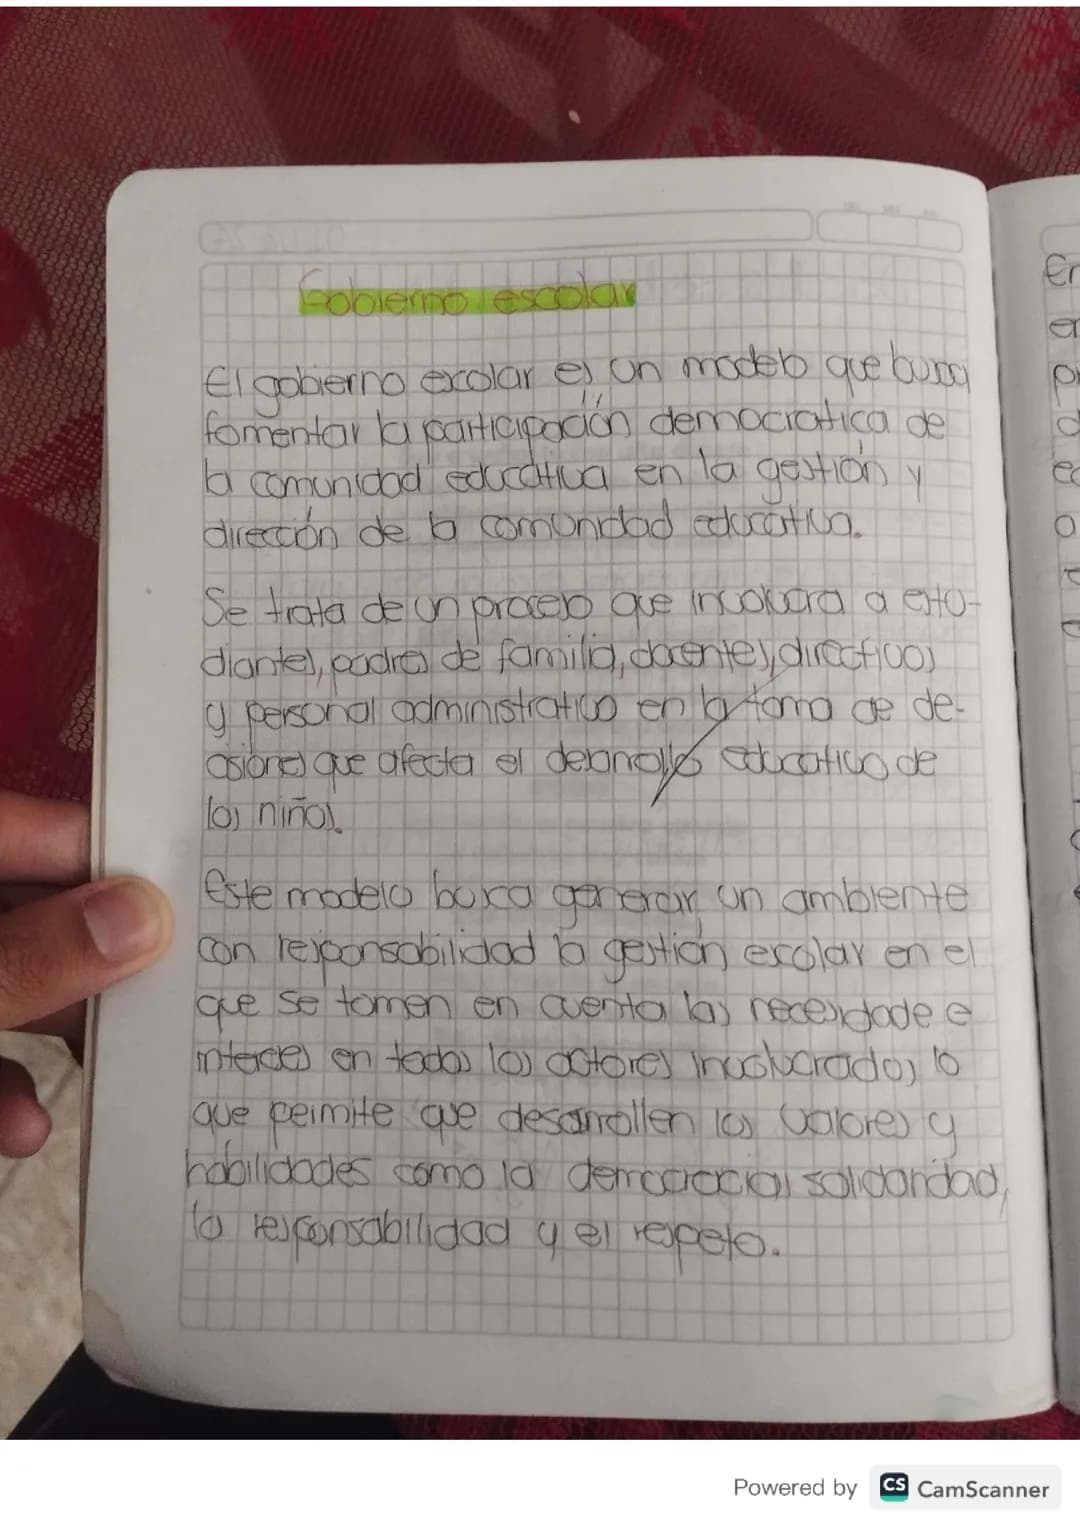 Gobierno escolar
El gobierno escolar es un modelo que busca
fomentar la participación democratica de
la comunidad educativa en la gestión y
dirección de la comunidad educativa.
Se trata de un proceso que involucra a estu-
diantes, padres de familia, docentes, directivos
y personal administrativo en la toma de de-
cisiones que afecta el desarrollo educativo de
los niños.
Este modelo busca generar un ambiente
con responsabilidad la gestión escolar en el
que se tomen en cuenta las necesidade e
intereses en todos los actores involucrados lo
que permite que desarrollen los valores y
habilidades como la democracia, solidaridad,
la responsabilidad y el respeto.
En
en
Powered by CS CamScanner